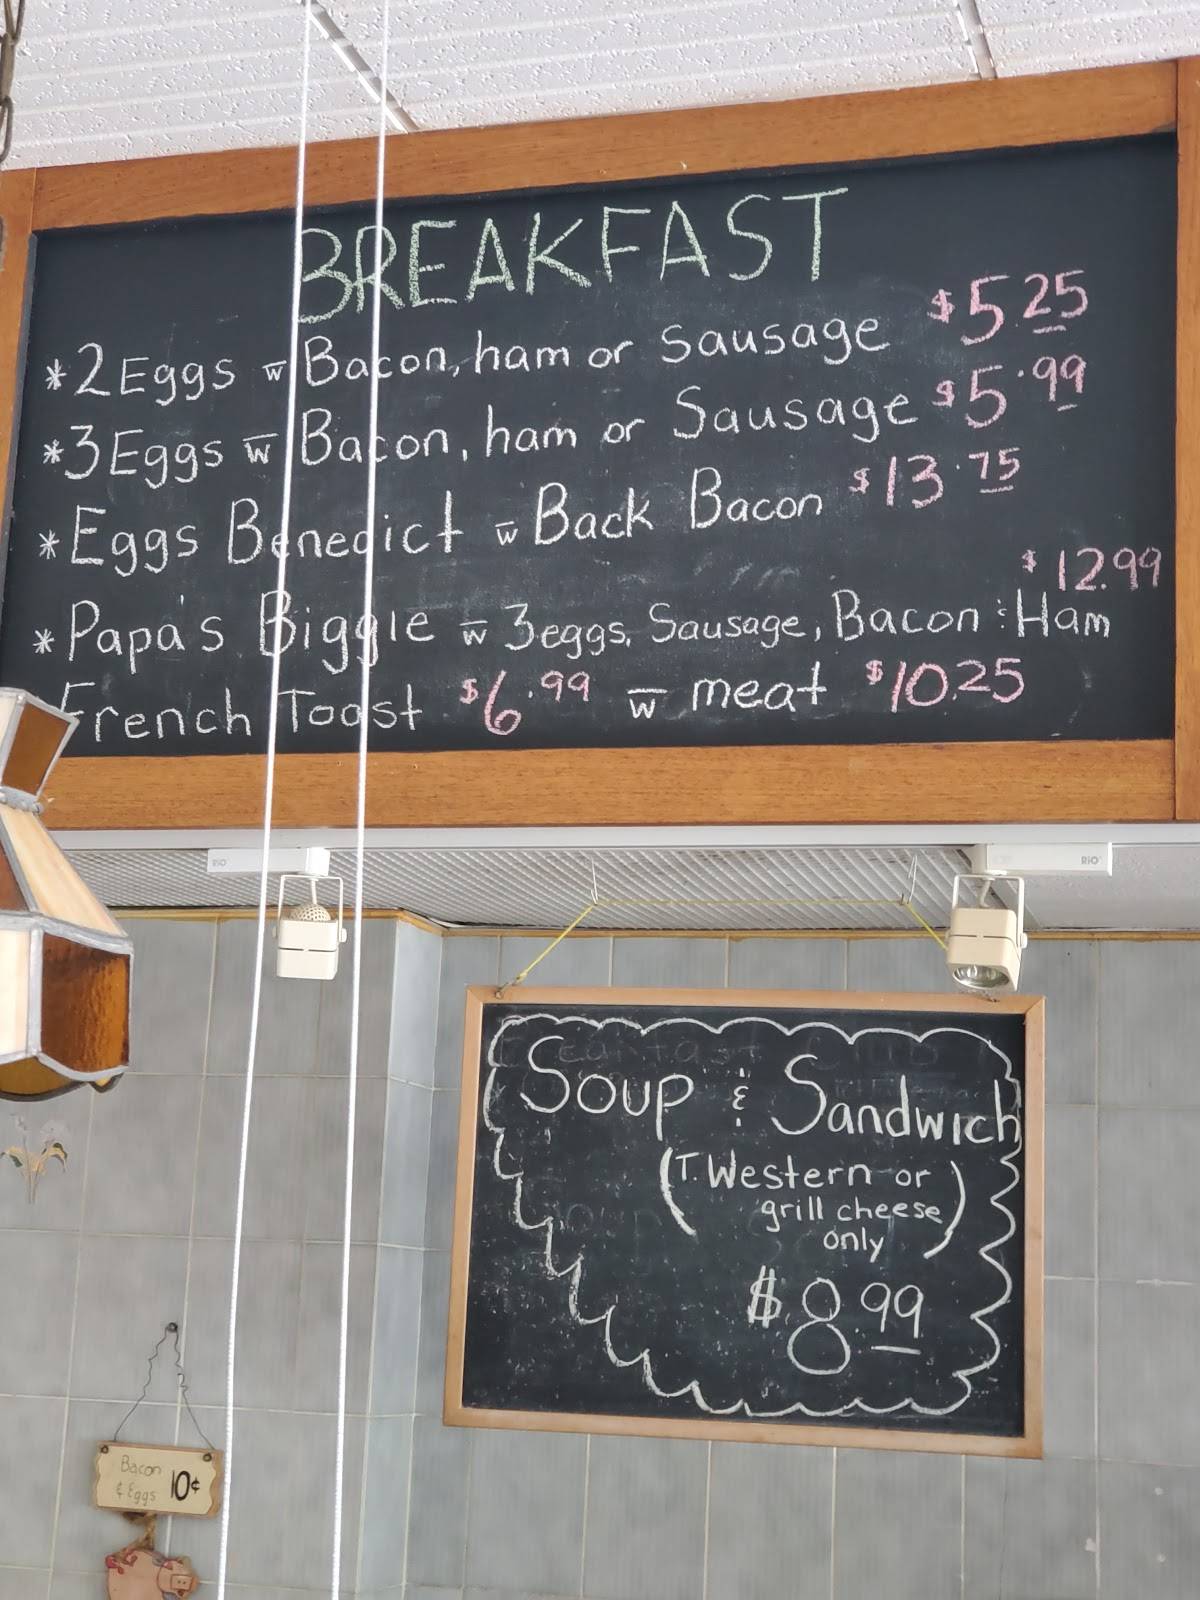 BREAKFAST
*2 Eggs w Bacon, ham or Sausage $5.25
*3 Eggs w Bacon, ham or Sausage $5.99
*Eggs Benedict w Back Bacon $13.75
$12.99
*Papa's Biggie w 3 eggs, Sausage, Bacon & Ham
French Toast $6.99 w meat $10.25
RIO
RIO
Soup & Sandwich
(T. Western or
grill cheese
only)
$8.99
Bacon
& Eggs 10¢